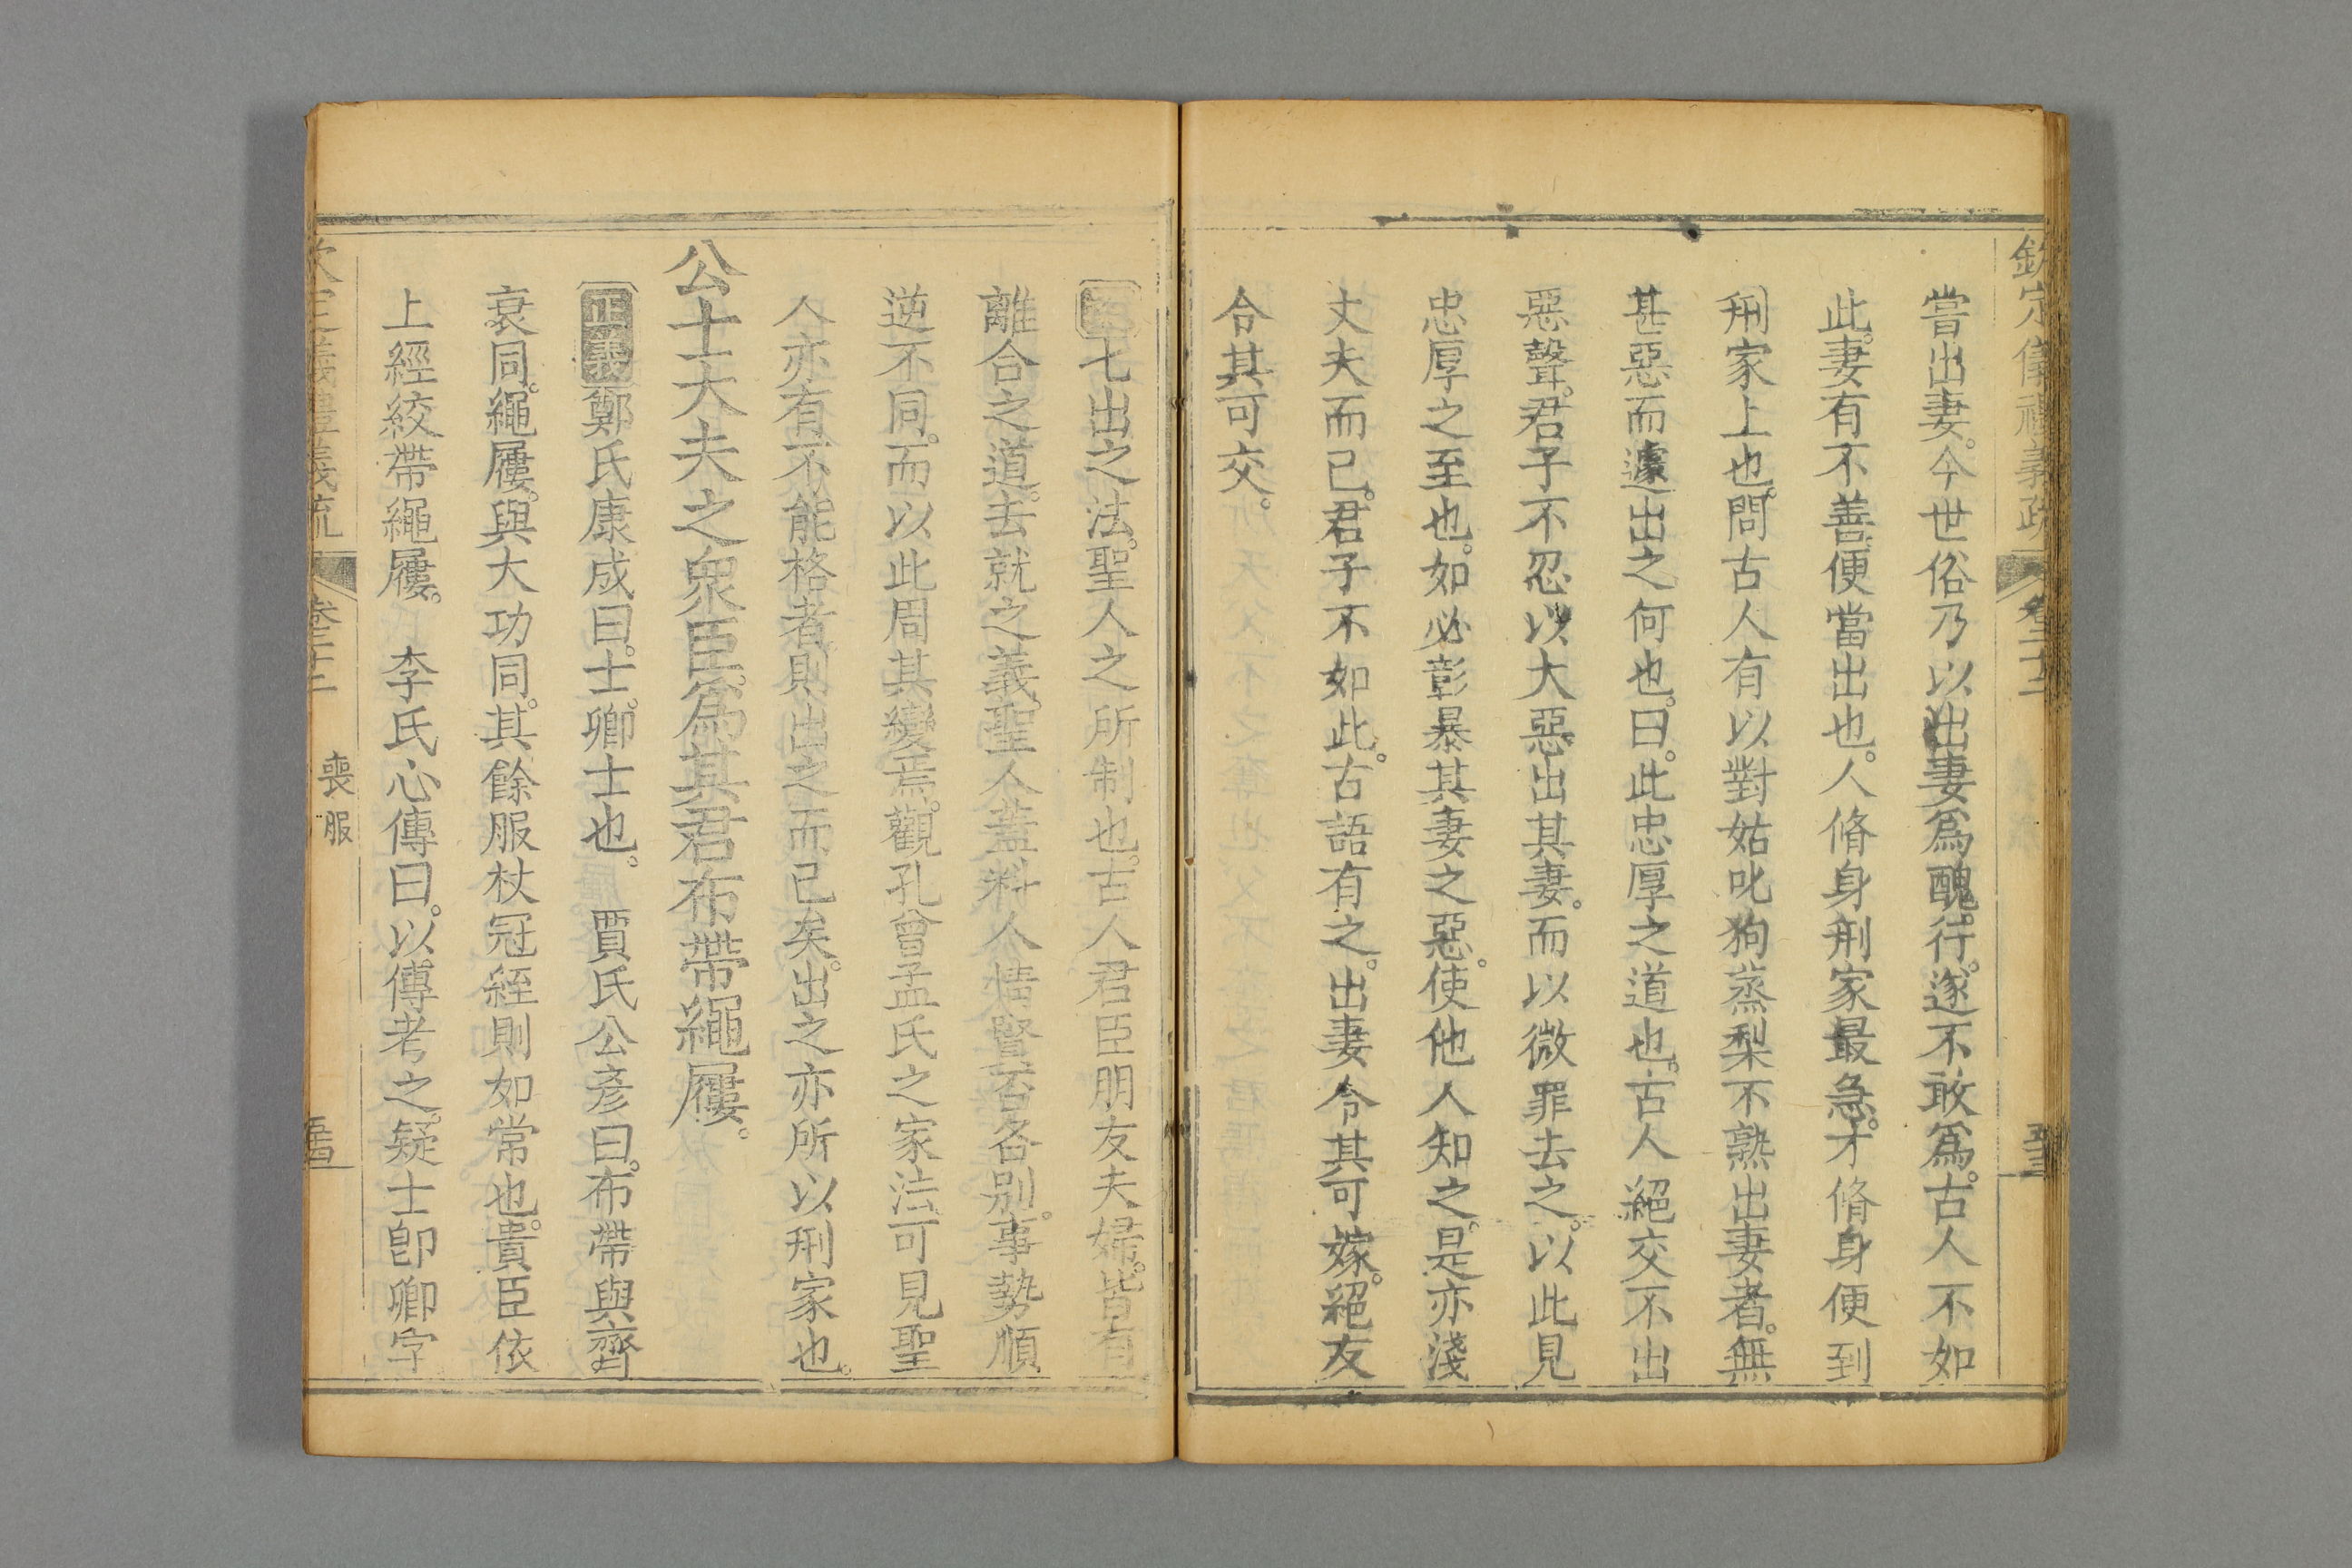 欽定儀禮義疏 卷二十二
當出妻。今世俗乃以出妻為醜行。遂不敢為。古人不如
此。妻有不善。便當出也。人脩身刑家最急。才脩身便到
刑家上也。問古人有以對姑叱狗蒸梨不熟出妻者。無
甚惡而遽出之何也。曰。此忠厚之道也。古人絕交不出
惡聲。君子不忍以大惡出其妻。而以微罪去之。以此見
忠厚之至也。如必彰暴其妻之惡。使他人知之。是亦淺
丈夫而已。君子不如此。古語有之。出妻令其可嫁。絕友
合其可交。
七出之法。聖人之所制也。古人君臣朋友夫婦。皆有
離合之道。去就之義。聖人蓋料人情賢否各別。事勢順
逆不同。而以此周其變焉。觀孔曾孟氏之家法。可見聖
人亦有不能格者。則出之而已矣。出之亦所以刑家也。
公士大夫之衆臣。為其君布帶繩屨。
正義鄭氏康成曰。士。卿士也。 賈氏公彥曰。布帶與齊
衰同。繩屨。與大功同。其餘服杖冠絰則如常也。貴臣依
上經絞帶繩屨。 李氏心傳曰。以傳考之。疑士卽卿字
欽定儀禮義疏 卷二十二 喪服